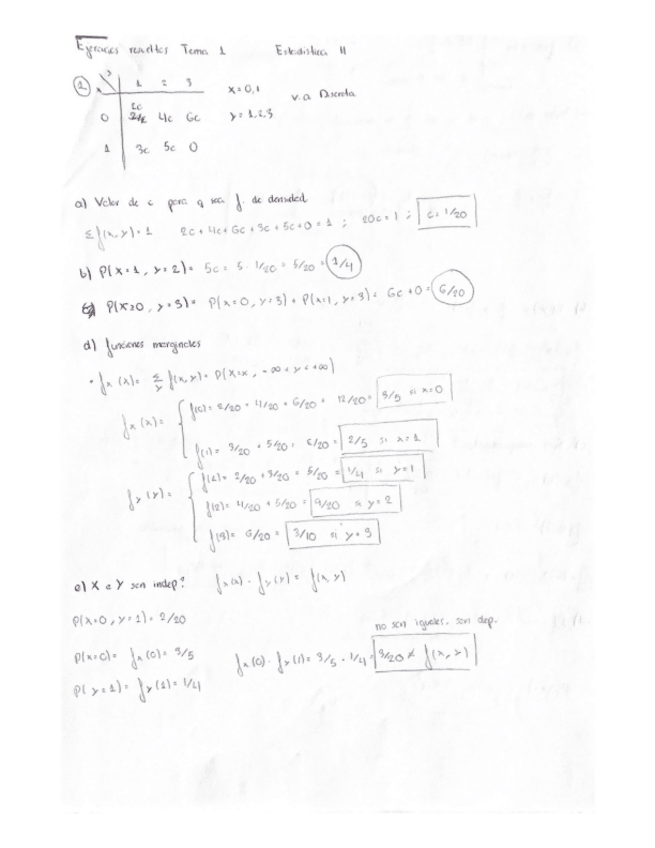 Ejercicios resueltos Tema 1 Estadística II
① y 1 2 3 x = 0,1 v.a Discreta
x
2c
0 4c 6c y = 1,2,3
1 3c 5c 0
a) Valor de c para q sea f. de densidad
Σ f(x,y) = 1 2c + 4c + 6c + 3c + 5c + 0 = 1 ; 20c = 1 ; c = 1/20
b) P(X=1, y=2) = 5c = 5 · 1/20 = 5/20 = 1/4
c) P(X≥0, y=3) = P(x=0, y=3) + P(x=1, y=3) = 6c + 0 = 6/20
d) funciones marginales
• fx(x) = Σy f(x,y) = P(X=x, -∞ < y < +∞)
fx(x) = { f(0) = 2/20 + 4/20 + 6/20 = 12/20 = 3/5 si x=0
f(1) = 3/20 + 5/20 = 8/20 = 2/5 si x=1
fy(y) = { f(1) = 2/20 + 3/20 = 5/20 = 1/4 si y=1
f(2) = 4/20 + 5/20 = 9/20 si y=2
f(3) = 6/20 = 3/10 si y=3
e) X e Y son indep? fx(x) · fy(y) = f(x,y)
P(x=0, y=1) = 2/20
no son iguales, son dep.
P(x=0) = fx(0) = 3/5 fx(0) · fy(1) = 3/5 · 1/4 = 3/20 ≠ f(x,y)
P(y=1) = fy(1) = 1/4